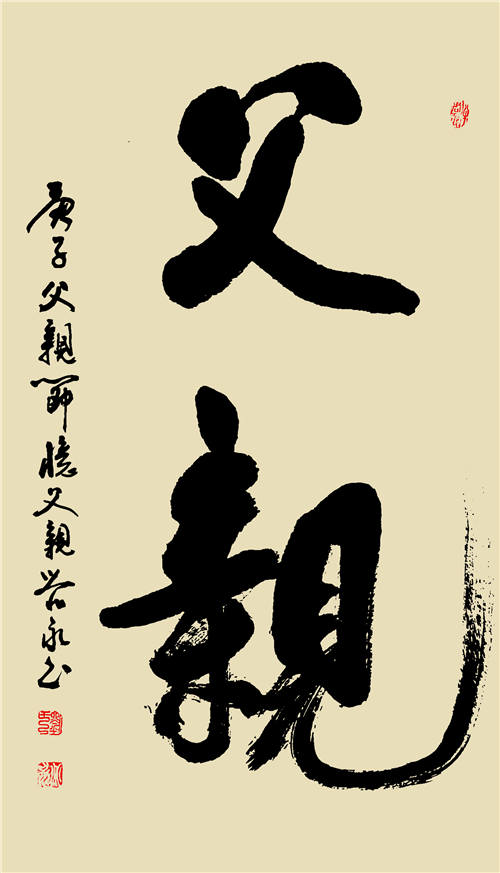 父親
庚子父親節憶父親永書